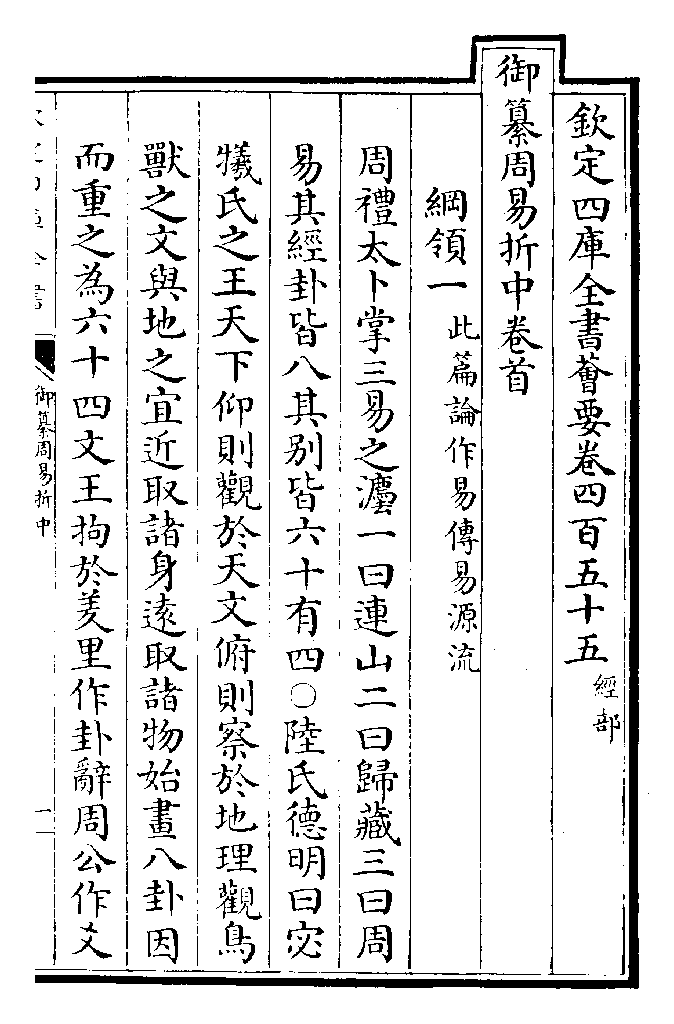 欽定四庫全書薈要卷四百五十五 經部
御纂周易折中卷首
綱領一 此篇論作易傳易源流
周禮太卜掌三易之灋一曰連山二曰歸藏三曰周
易其經卦皆八其别皆六十有四○陸氏德明曰宓
犧氏之王天下仰則觀於天文俯則察於地理觀鳥
獸之文與地之宜近取諸身逺取諸物始畫八卦因
而重之為六十四文王拘於羑里作卦辭周公作爻
御纂周易折中
一